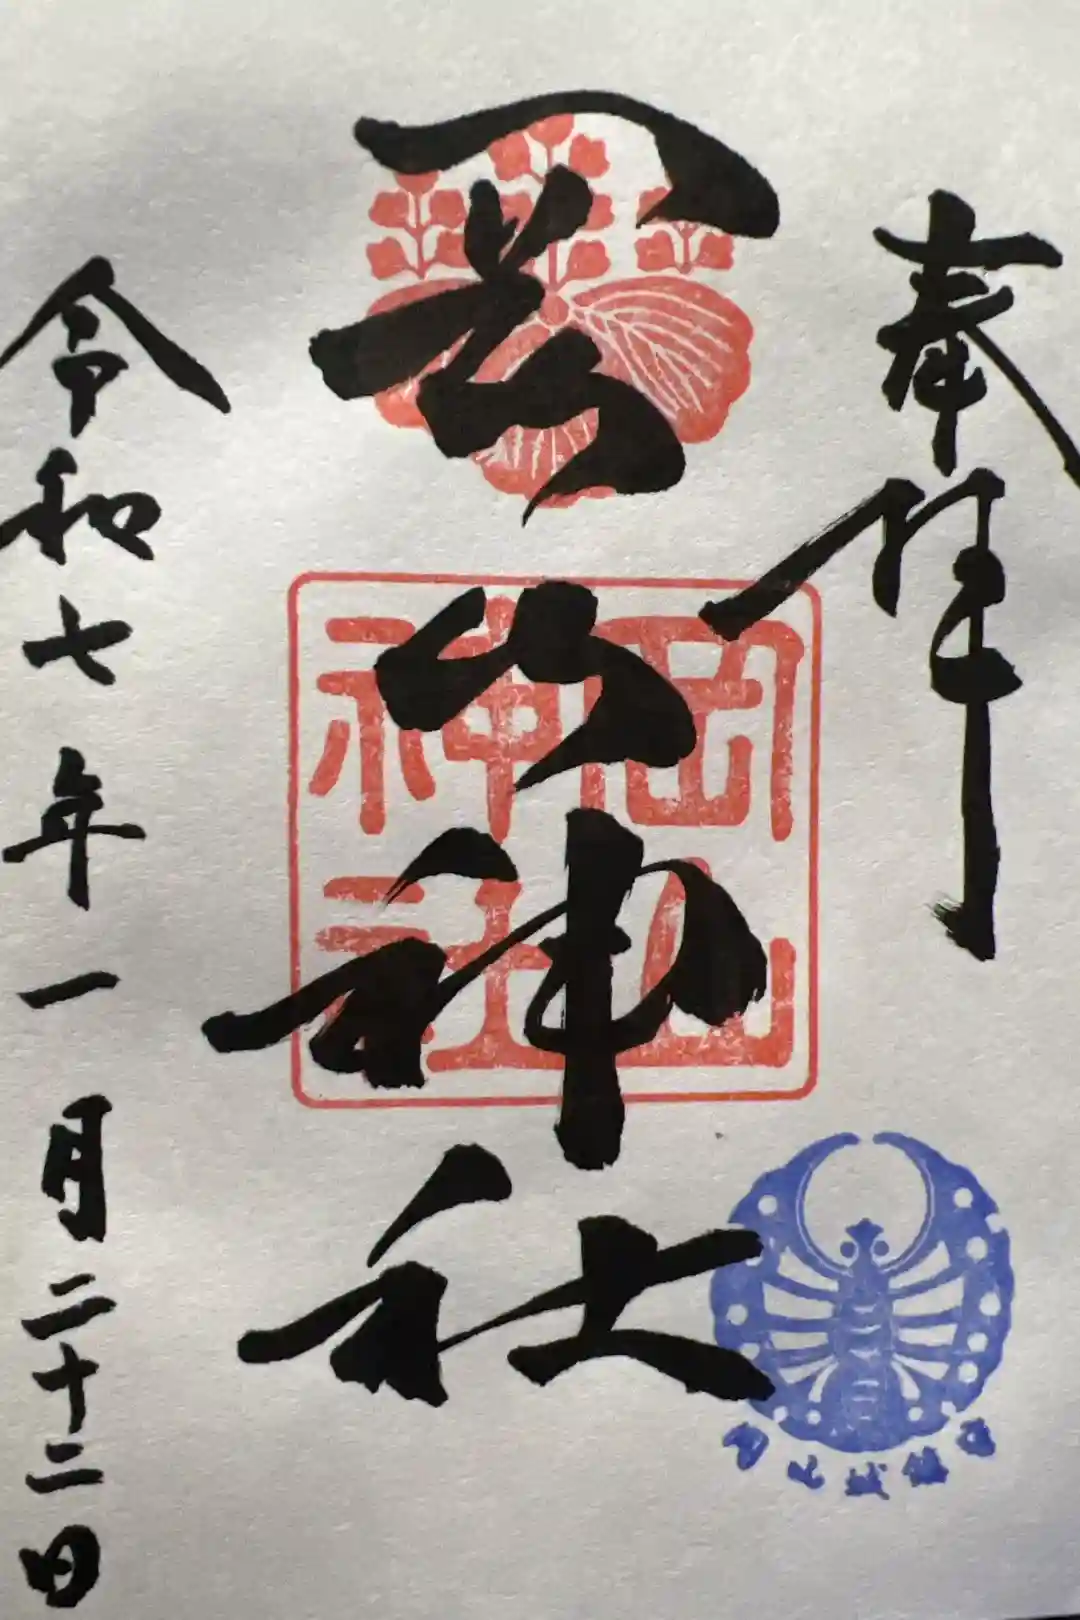 奉拝
岡山神社
令和七年一月二十二日
岡山
神社
岡山城鎮守